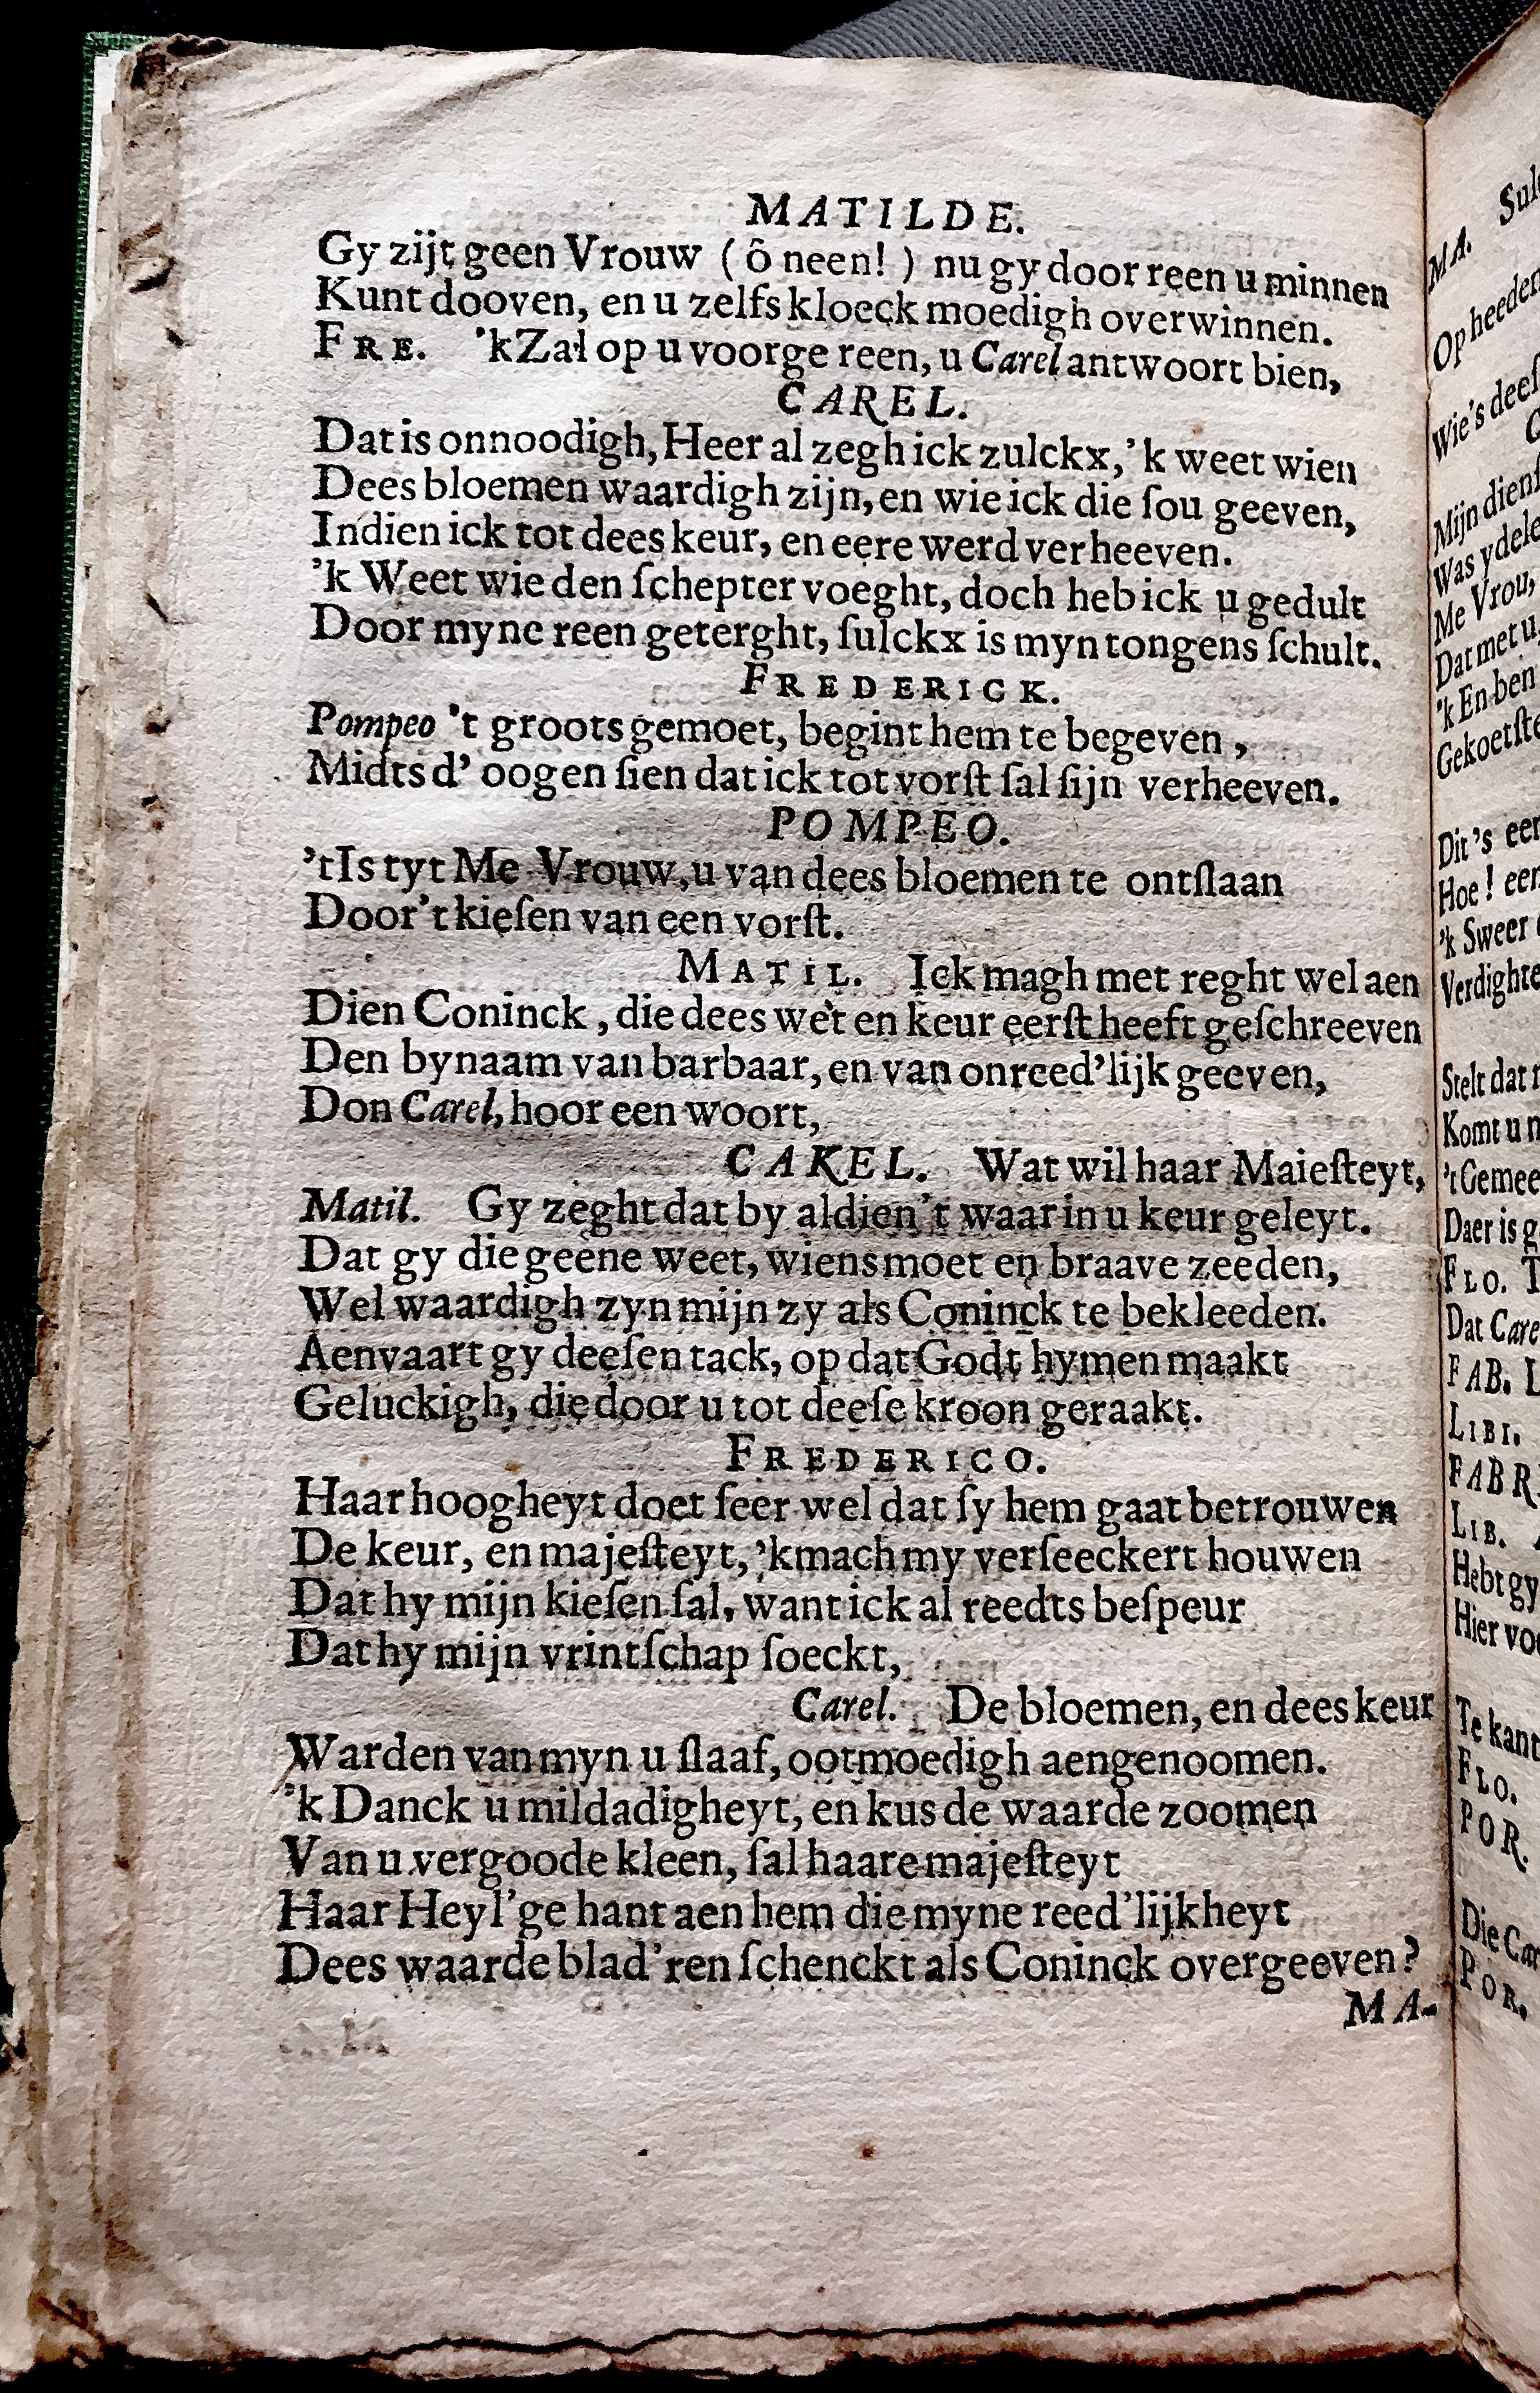 MATILDE.
Gy zijt geen Vrouw ( ô neen! ) nu gy door reen u minnen
Kunt dooven, en u zelfs kloeck moedigh overwinnen.
FRE. 'k Zal op u voorge reen, u Carel antwoort bien,
CAREL.
Dat is onnoodigh, Heer al zegh ick zulckx, 'k weet wien
Dees bloemen waardigh zijn, en wie ick die ſou geeven,
Indien ick tot dees keur, en eere werd verheeven.
'k Weet wie den ſchepter voeght, doch heb ick u gedult
Door myne reen geterght, ſulckx is myn tongens ſchult.
FREDERICK.
Pompeo 't groots gemoet, begint hem te begeven,
Midts d' oogen ſien dat ick tot vorſt ſal ſijn verheeven.
POMPEO.
't Is tyt Me Vrouw, u van dees bloemen te ontſlaan
Door 't kieſen van een vorſt.
MATIL. Ick magh met reght wel aen
Dien Coninck, die dees wet en keur eerſt heeft geſchreeven
Den bynaam van barbaar, en van onreed'lijk geeven,
Don Carel, hoor een woort,
CAKEL. Wat wil haar Maieſteyt,
Matil. Gy zeght dat by aldien 't waar in u keur geleyt.
Dat gy die geene weet, wiens moet en braave zeeden,
Wel waardigh zyn mijn zy als Coninck te bekleeden.
Aenvaart gy deeſen tack, op dat Godt hymen maakt
Geluckigh, die door u tot deeſe kroon geraakt.
FREDERICO.
Haar hoogheyt doet ſeer wel dat ſy hem gaat betrouwen
De keur, en majeſteyt, 'k mach my verſeeckert houwen
Dat hy mijn kieſen ſal, want ick al reedts beſpeur
Dat hy mijn vrintſchap ſoeckt,
Carel. De bloemen, en dees keur
Warden van myn u ſlaaf, ootmoedigh aengenoomen.
'k Danck u mildadigheyt, en kus de waarde zoomen
Van u vergoode kleen, ſal haare majeſteyt
Haar Heyl'ge hant aen hem die myne reed'lijkheyt
Dees waarde blad'ren ſchenckt als Coninck overgeeven?
MA-
MA. Sul
Op heeden
Wie's deeſ
Mijn dienſ
Was ydele
Me Vrou,
Dat met u,
'k En ben
Gekoetſte
Dit 's een
Hoe! een
'k Sweer
Verdighte
Stelt dat
Komt u
't Gemee
Daer is g
FLO. T
Dat Care
FAB. L
LIBI.
FABR
LIB.
Hebt gy
Hier voo
Te kant
FLO.
POR.
Die Car
POR.